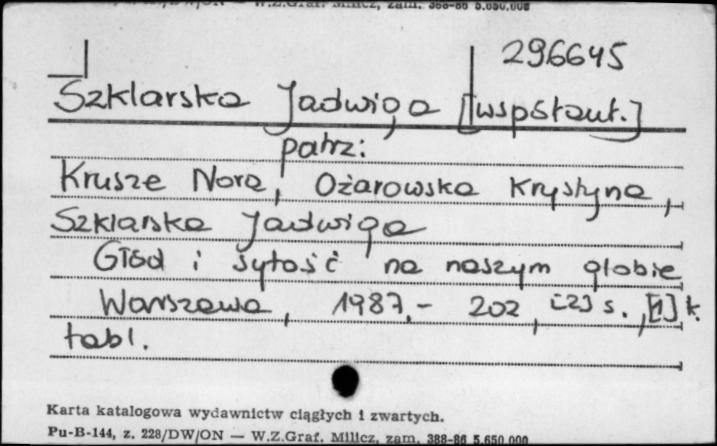 Pu-B-144, z. 228/DW/ON — W.Z.Graf. Milicz, zam. 388-86 5.650.000
296645
Szklarska Jadwiga [współaut.]
patrz:
Krusze Nora, Ożarowska Krystyna,
Szklarska Jadwiga
Głód i sytość na naszym globie
Warszawa, 1987.- 202, [2] s., [1] k.
tabl.
Karta katalogowa wydawnictw ciągłych i zwartych.
Pu-B-144, z. 228/DW/ON — W.Z.Graf. Milicz, zam. 388-86 5.650.000